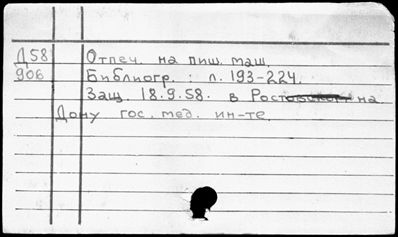 Д58 Отпеч. на пиш. маш.
906 Библиогр. : л. 193-224.
Защ. 18.9.58. в Ростовском на
Дону гос. мед. ин-те.